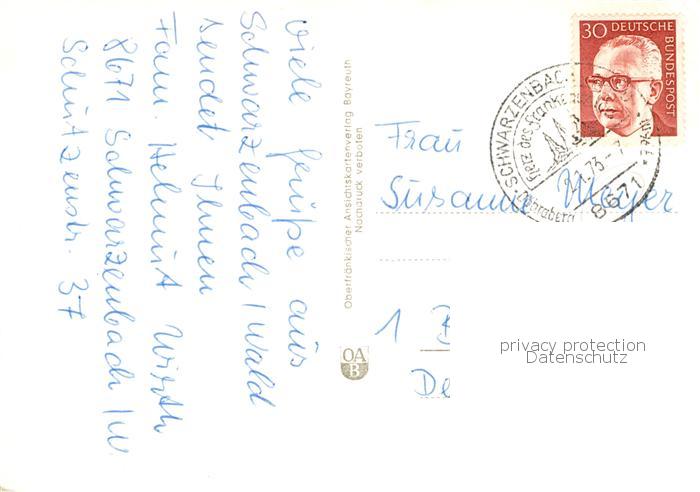 Viele Grüße aus
Schwarzenbach/Wald
sendet Ihnen
Fam. Helmut Wirth
8671 Schwarzenbach/W
Schützenstr. 37
Oberfränkischer Ansichtskartenverlag Bayreuth
Nachdruck verboten
OA
B
30 DEUTSCHE
BUNDESPOST
SCHWARZENBACH
Herz des Frankenw
73-7
8671
Frau
Susanne Mayer
1 B
De
privacy protection
Datenschutz